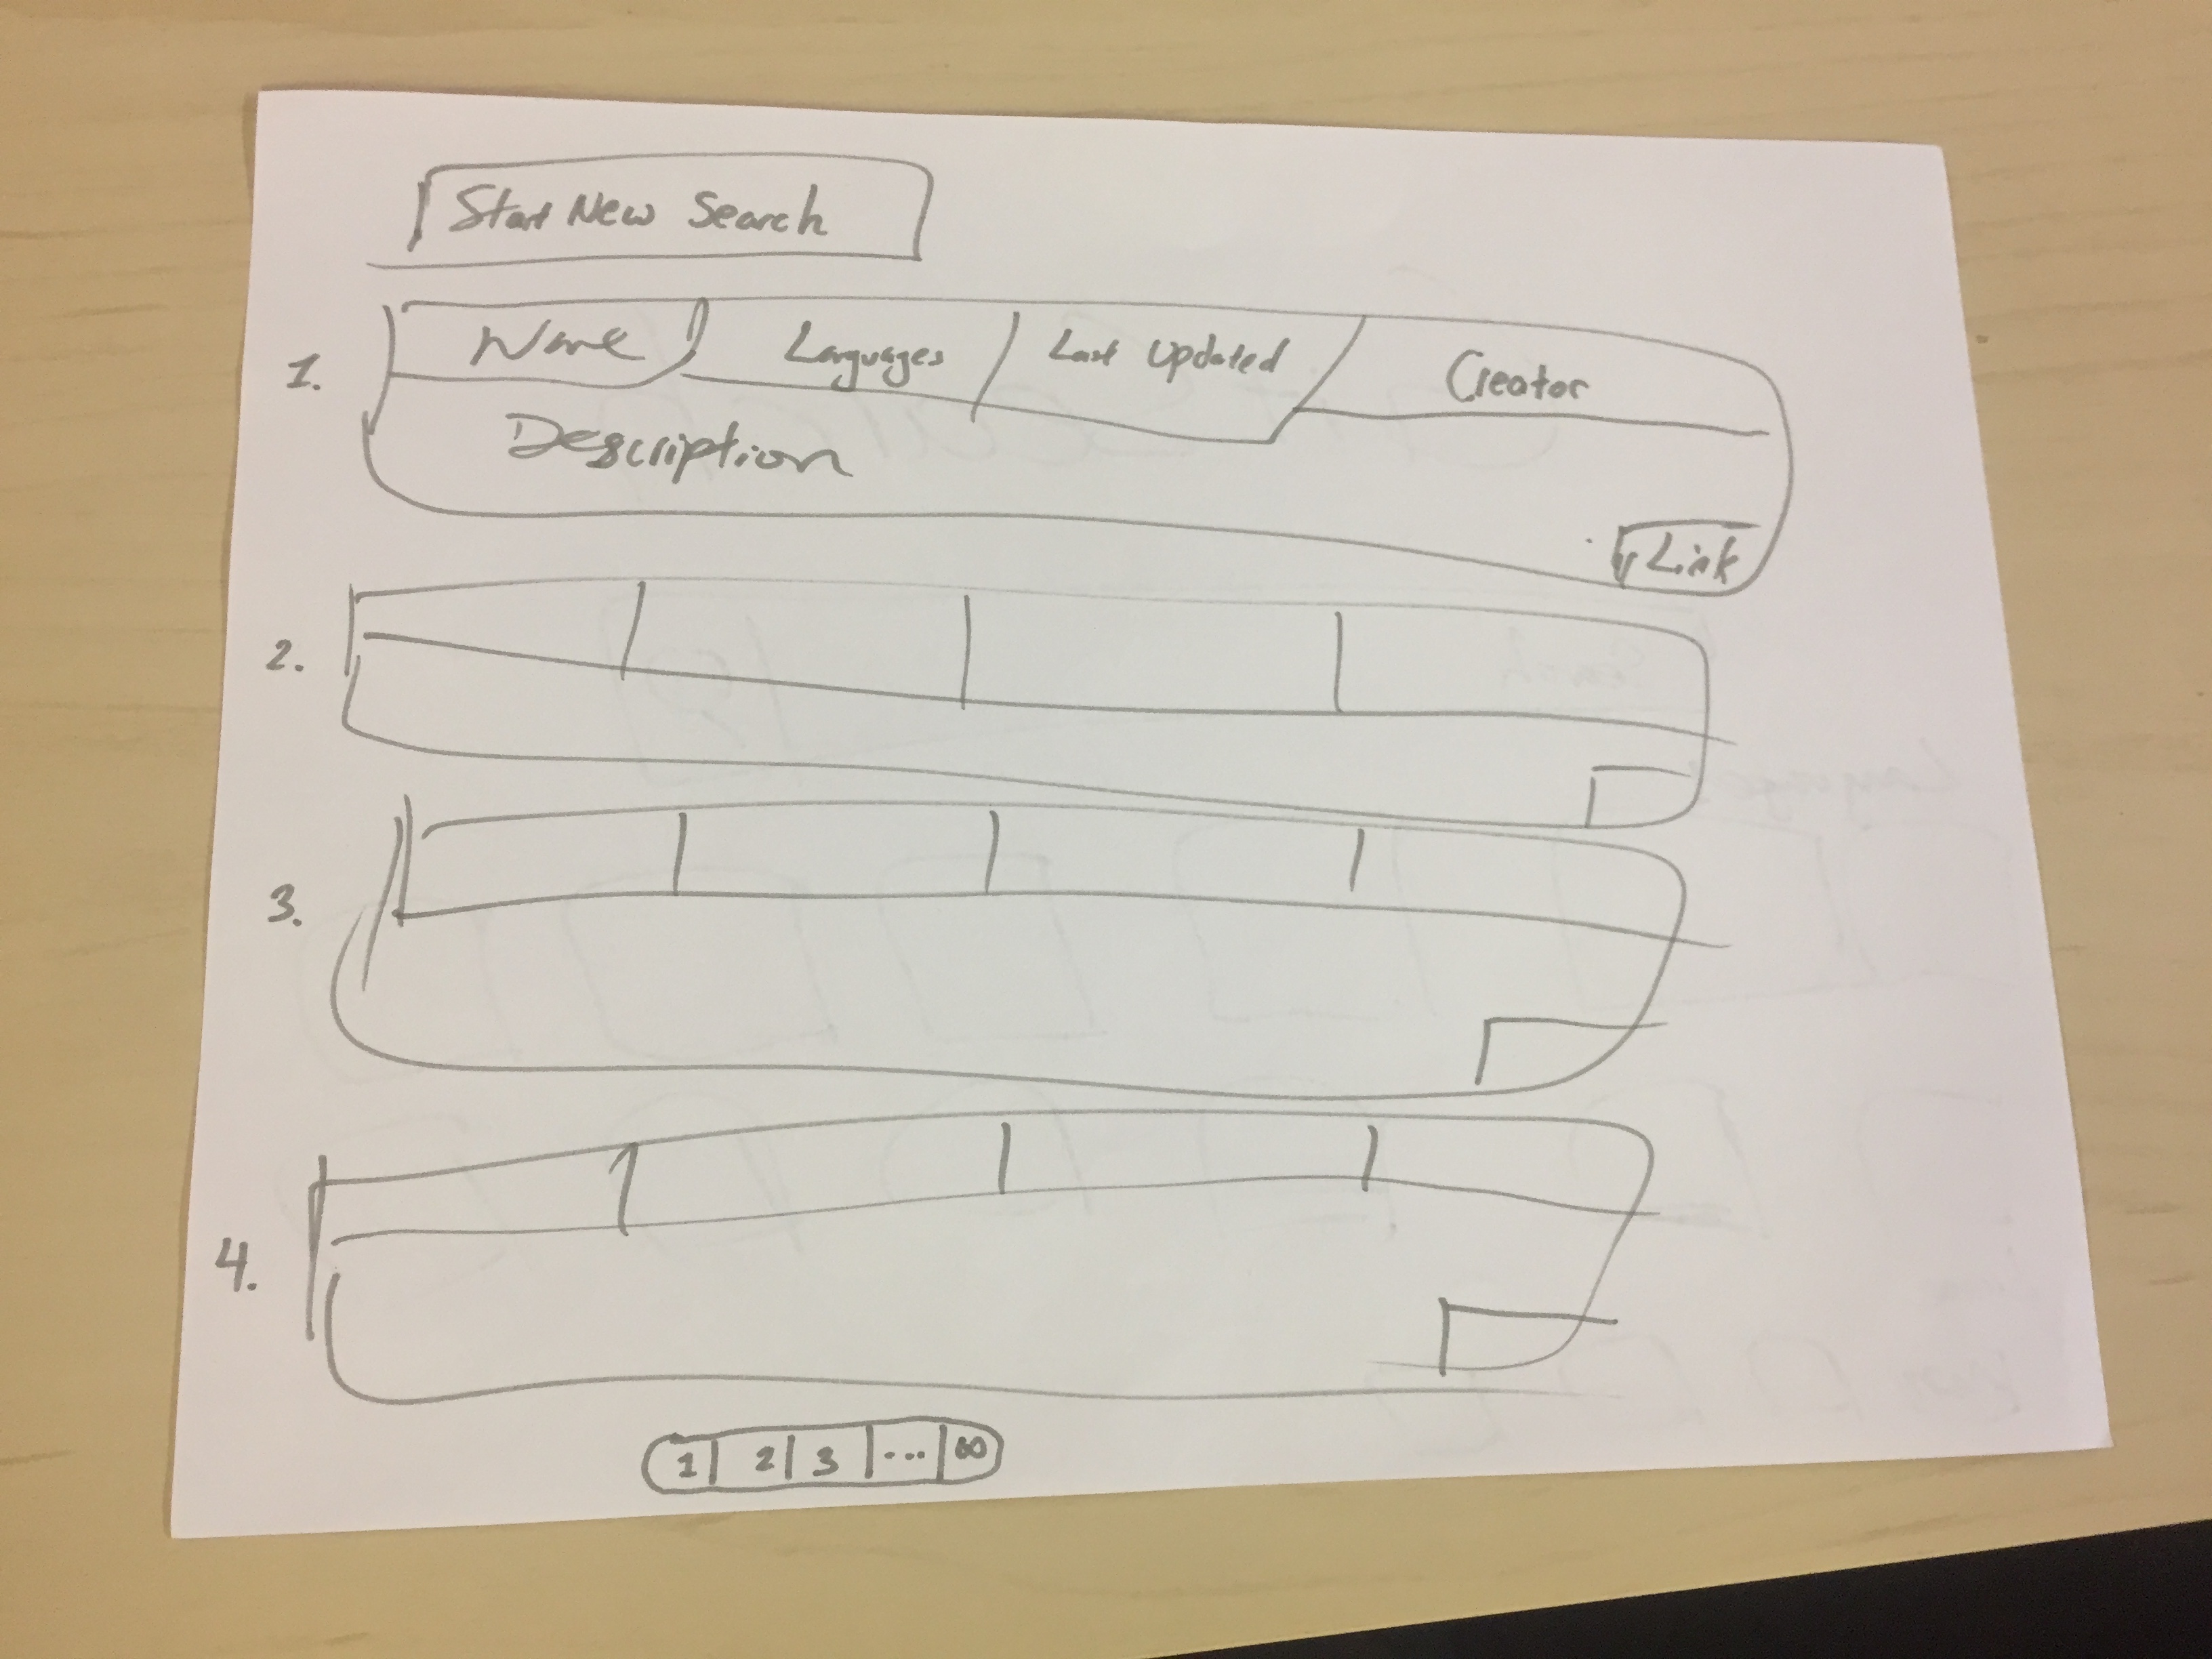 Start New Search
1. Name Languages Last Updated Creator
Description
Link
2.
3.
4.
1 2 3 ...